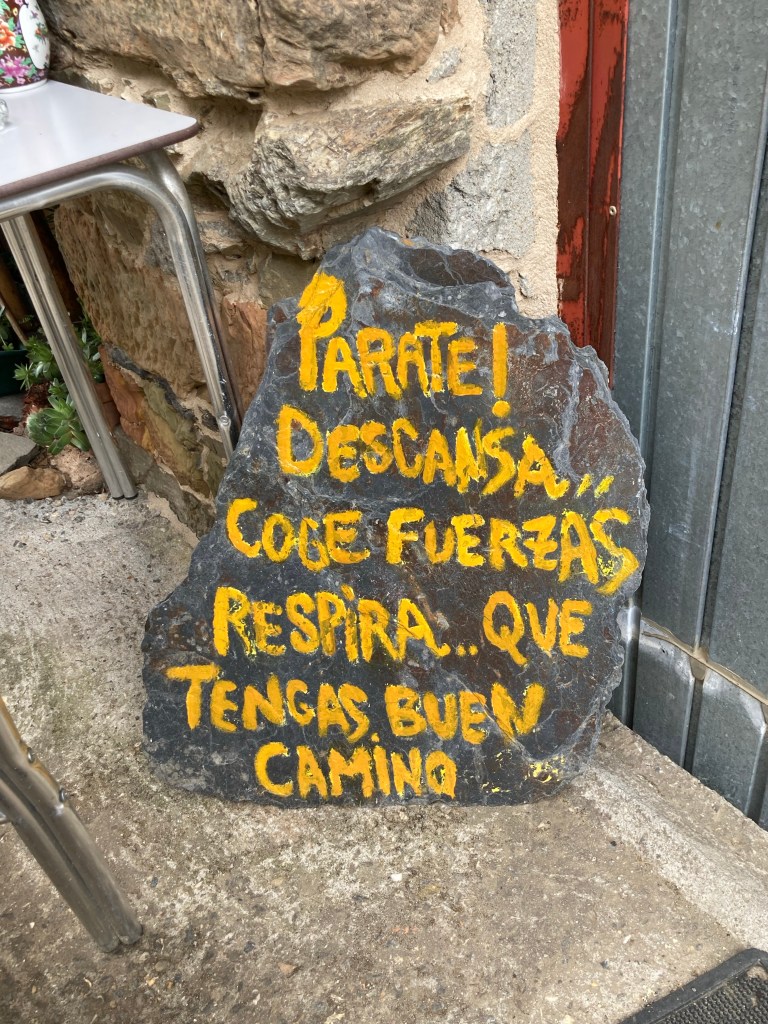 PARATE!
DESCANSA..
COGE FUERZAS
RESPiRA.. QUE
TENGAS BUEN
CAMiNO